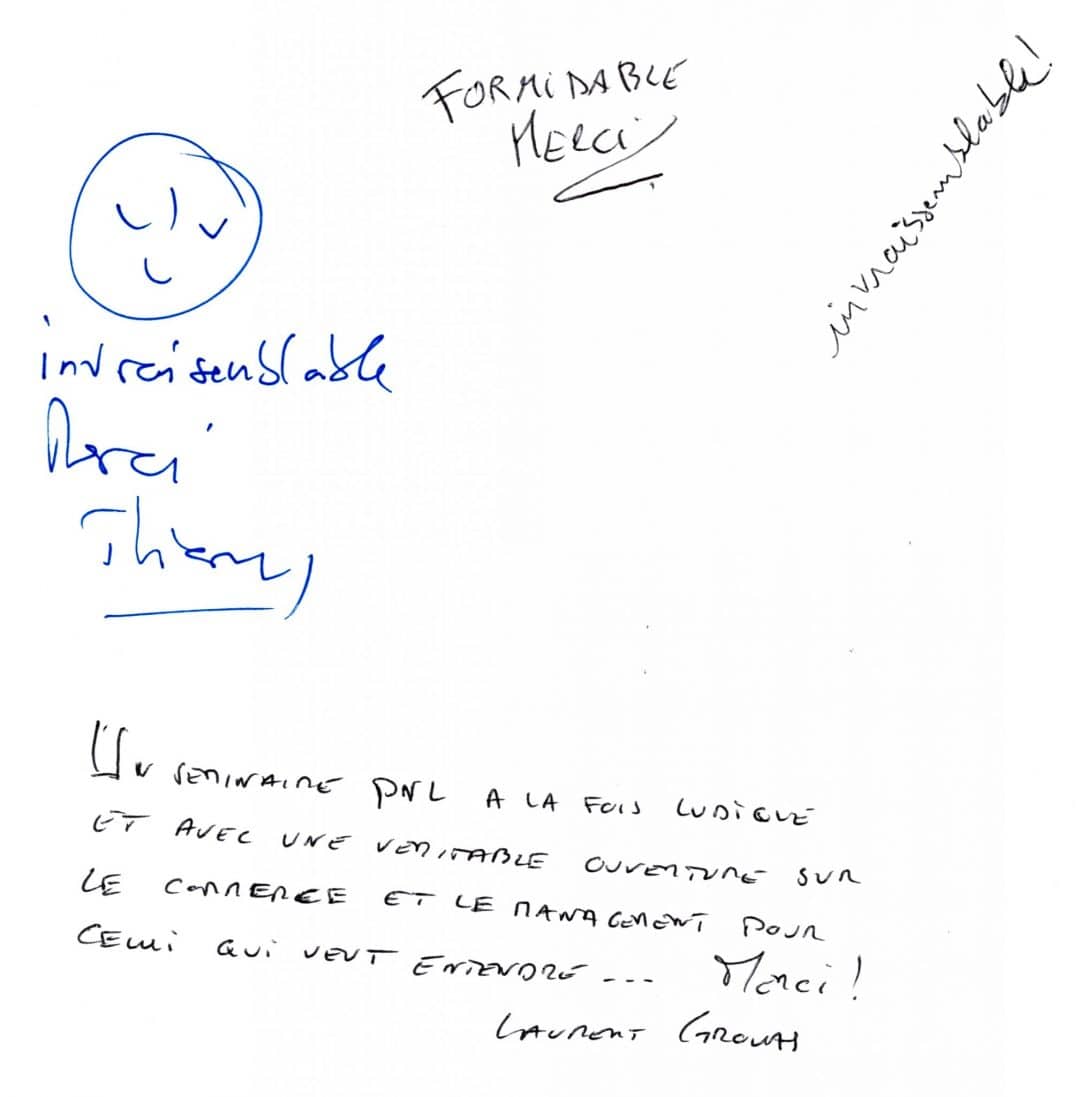 FORMIDABLE
MERCI
invraissemblable!
invraisenblable
Merci
Thierry
UN SEMINAIRE PNL A LA FOIS LUDIQUE
ET AVEC UNE VERITABLE OUVERTURE SUR
LE COMMERCE ET LE MANAGEMENT POUR
CELUI QUI VEUT ENTENDRE --- Merci!
LAURENT